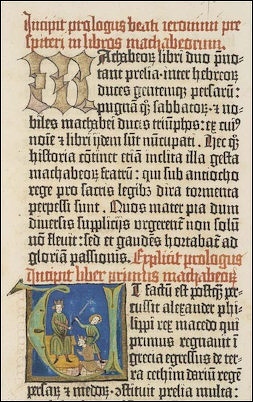 Incipit prologus beati ieronimi pre
sbiteri in libros machabeorum.
Machabeoꝝ libri duo p̄no
tant prelia · inter hebreoꝝ
duces gentemqꝫ persaꝝ:
pugnā qꝫ sabbatoꝝ · ⁊ no
biles machabei ducis triūphos: ex cuiꝰ
noīe ⁊ libri ijdem sūt nūcupati. Hec qꝫ
historia cōtinet etiā inclita illa gesta
machabeoꝝ fratrū: qui sub antiocho
rege pro sacris legibꝫ dira tormenta
perpessi sunt. Quos mater pia dum
diversis supplicijs urgerent non solū
nō flevit: sed et gaudēs hortabat̄ ad
gloriā passionis. Explicit prologus
Incipit liber primus machabeoꝝ
Et factū est postqꝫ per
cussit alexander phi
lippi rex macedo qui
primus regnavit ī
grecia egressus de ter
ra cethim dariū regē
persaꝝ ⁊ medoꝝ · ꝯstituit prelia multa: